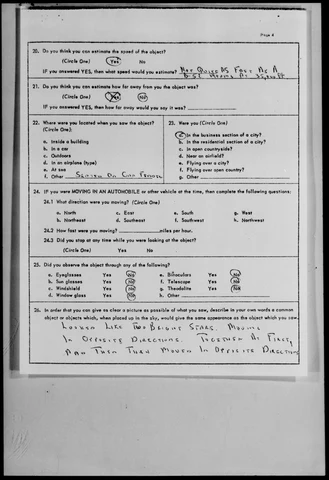 Page 4
20. Do you think you can estimate the speed of the object?
(Circle One) Yes No
IF you answered YES, then what speed would you estimate? Not Quite As Fast As A
21. Do you think you can estimate how far away from you the object was?
(Circle One) Yes No
IF you answered YES, then how far away would you say it was?
22. Where were you located when you saw the object?
(Circle One):
a. Inside a building
b. In a car
c. Outdoors
d. In an airplane (type)
e. At sea
f. Other
23. Were you (Circle One)
a. In the business section of a city?
b. In the residential section of a city?
c. In open countryside?
d. Near an airfield?
e. Flying over a city?
f. Flying over open country?
g. Other
24. IF you were MOVING IN AN AUTOMOBILE or other vehicle at the time, then complete the following questions:
24.1 What direction were you moving? (Circle One)
a. North c. East e. South g. West
b. Northeast d. Southeast f. Southwest h. Northwest
24.2 How fast were you moving? miles per hour.
24.3 Did you stop at any time while you were looking at the object?
(Circle One) Yes No
25. Did you observe the object through any of the following?
a. Eyeglasses Yes No e. Binoculars Yes No
b. Sun glasses Yes No f. Telescope Yes No
c. Windshield Yes No g. Theodolite Yes No
d. Window glass Yes No h. Other
26. In order that you can give as clear a picture as possible of what you saw, describe in your own words a common
object or objects which, when placed up in the sky, would give the same appearance as the object which you saw.
Looked Like Two Bright Stars. Moving
In Opposite Directions. Together At First,
And Then Then Moved In Opposite Directions